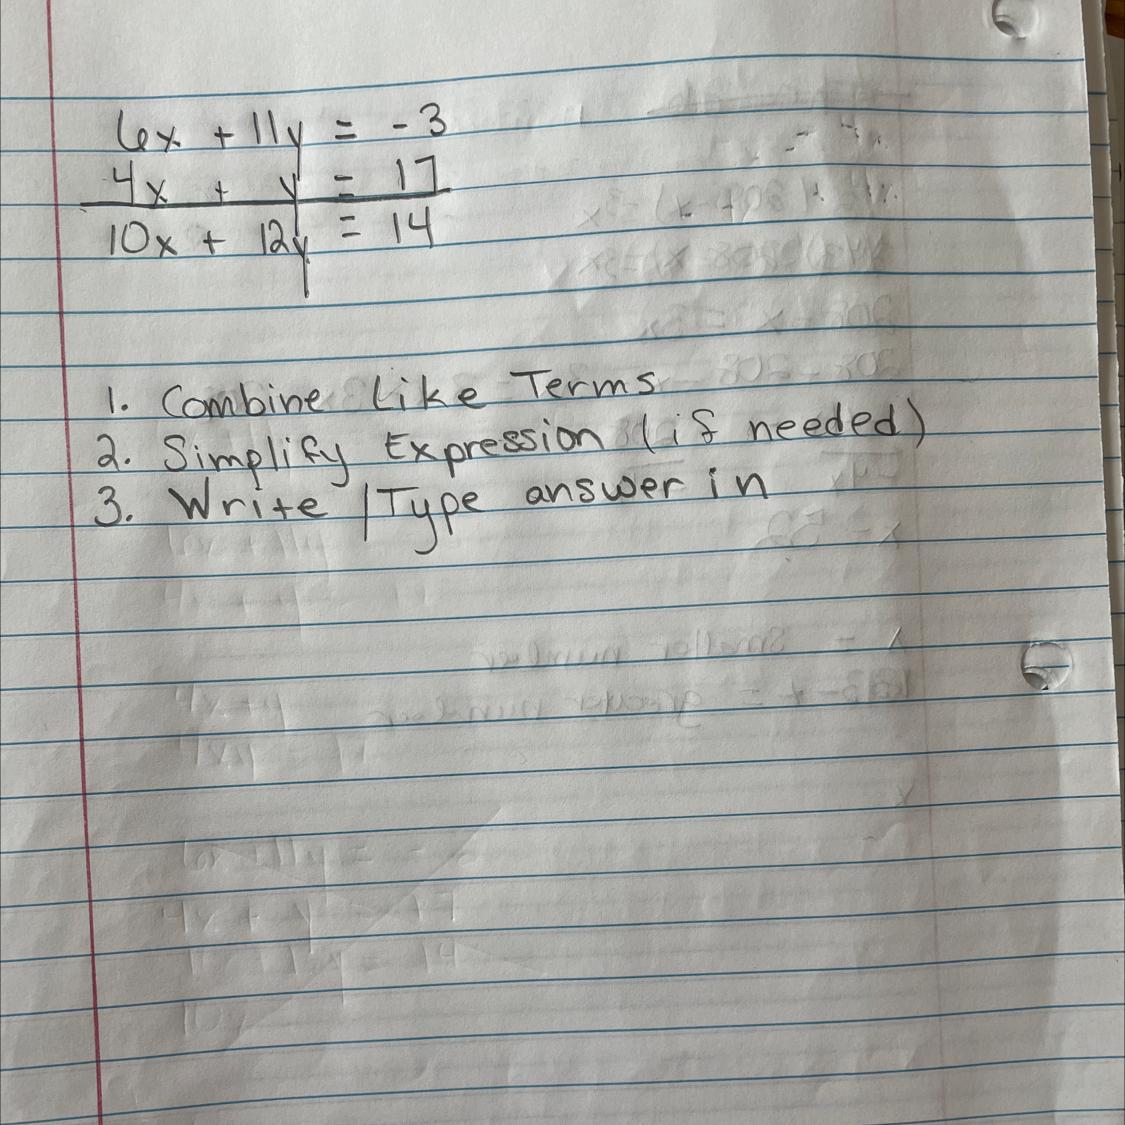 6x + 11y = -3
4x + y = 17
10x + 12y = 14
1. Combine Like Terms
2. Simplify Expression (if needed)
3. Write / Type answer in